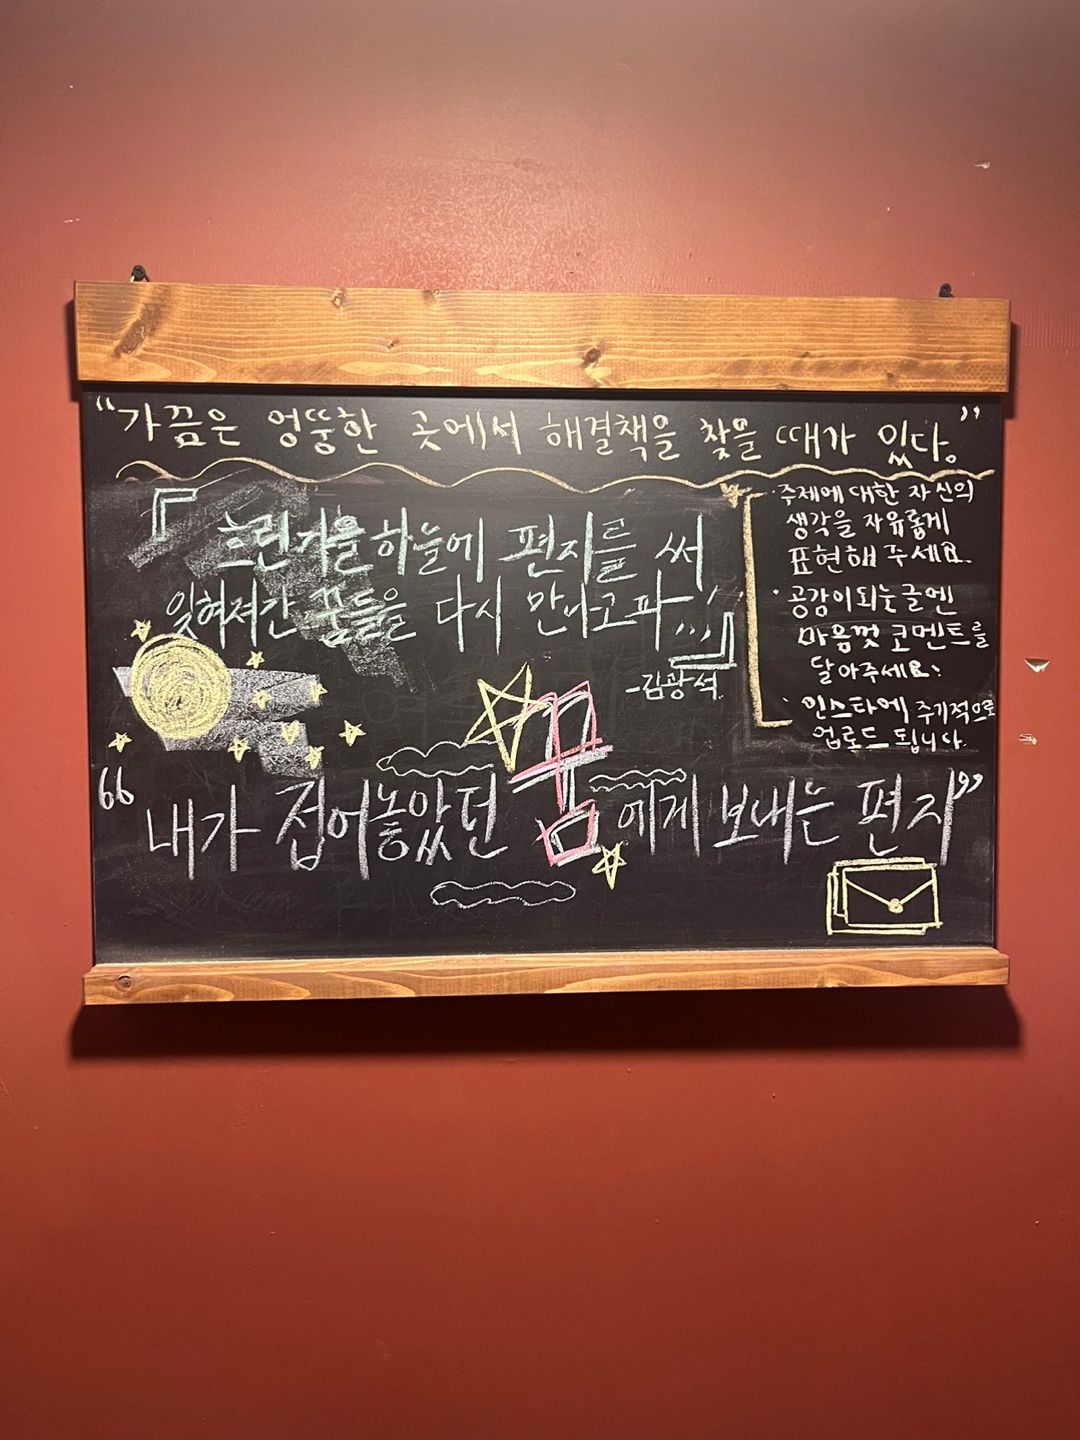 “가끔은 엉뚱한 곳에서 해결책을 찾을 때가 있다.”
『흐린가을하늘에 편지를 써
잊혀져간 꿈들을 다시 만나고파...』
-김광석
· 주제에 대한 자신의
생각을 자유롭게
표현해 주세요.
· 공감이되는글엔
마음껏 코멘트를
달아주세요.
· 인스타에 주기적으로
업로드 됩니다.
“내가 접어놓았던 꿈에게 보내는 편지”